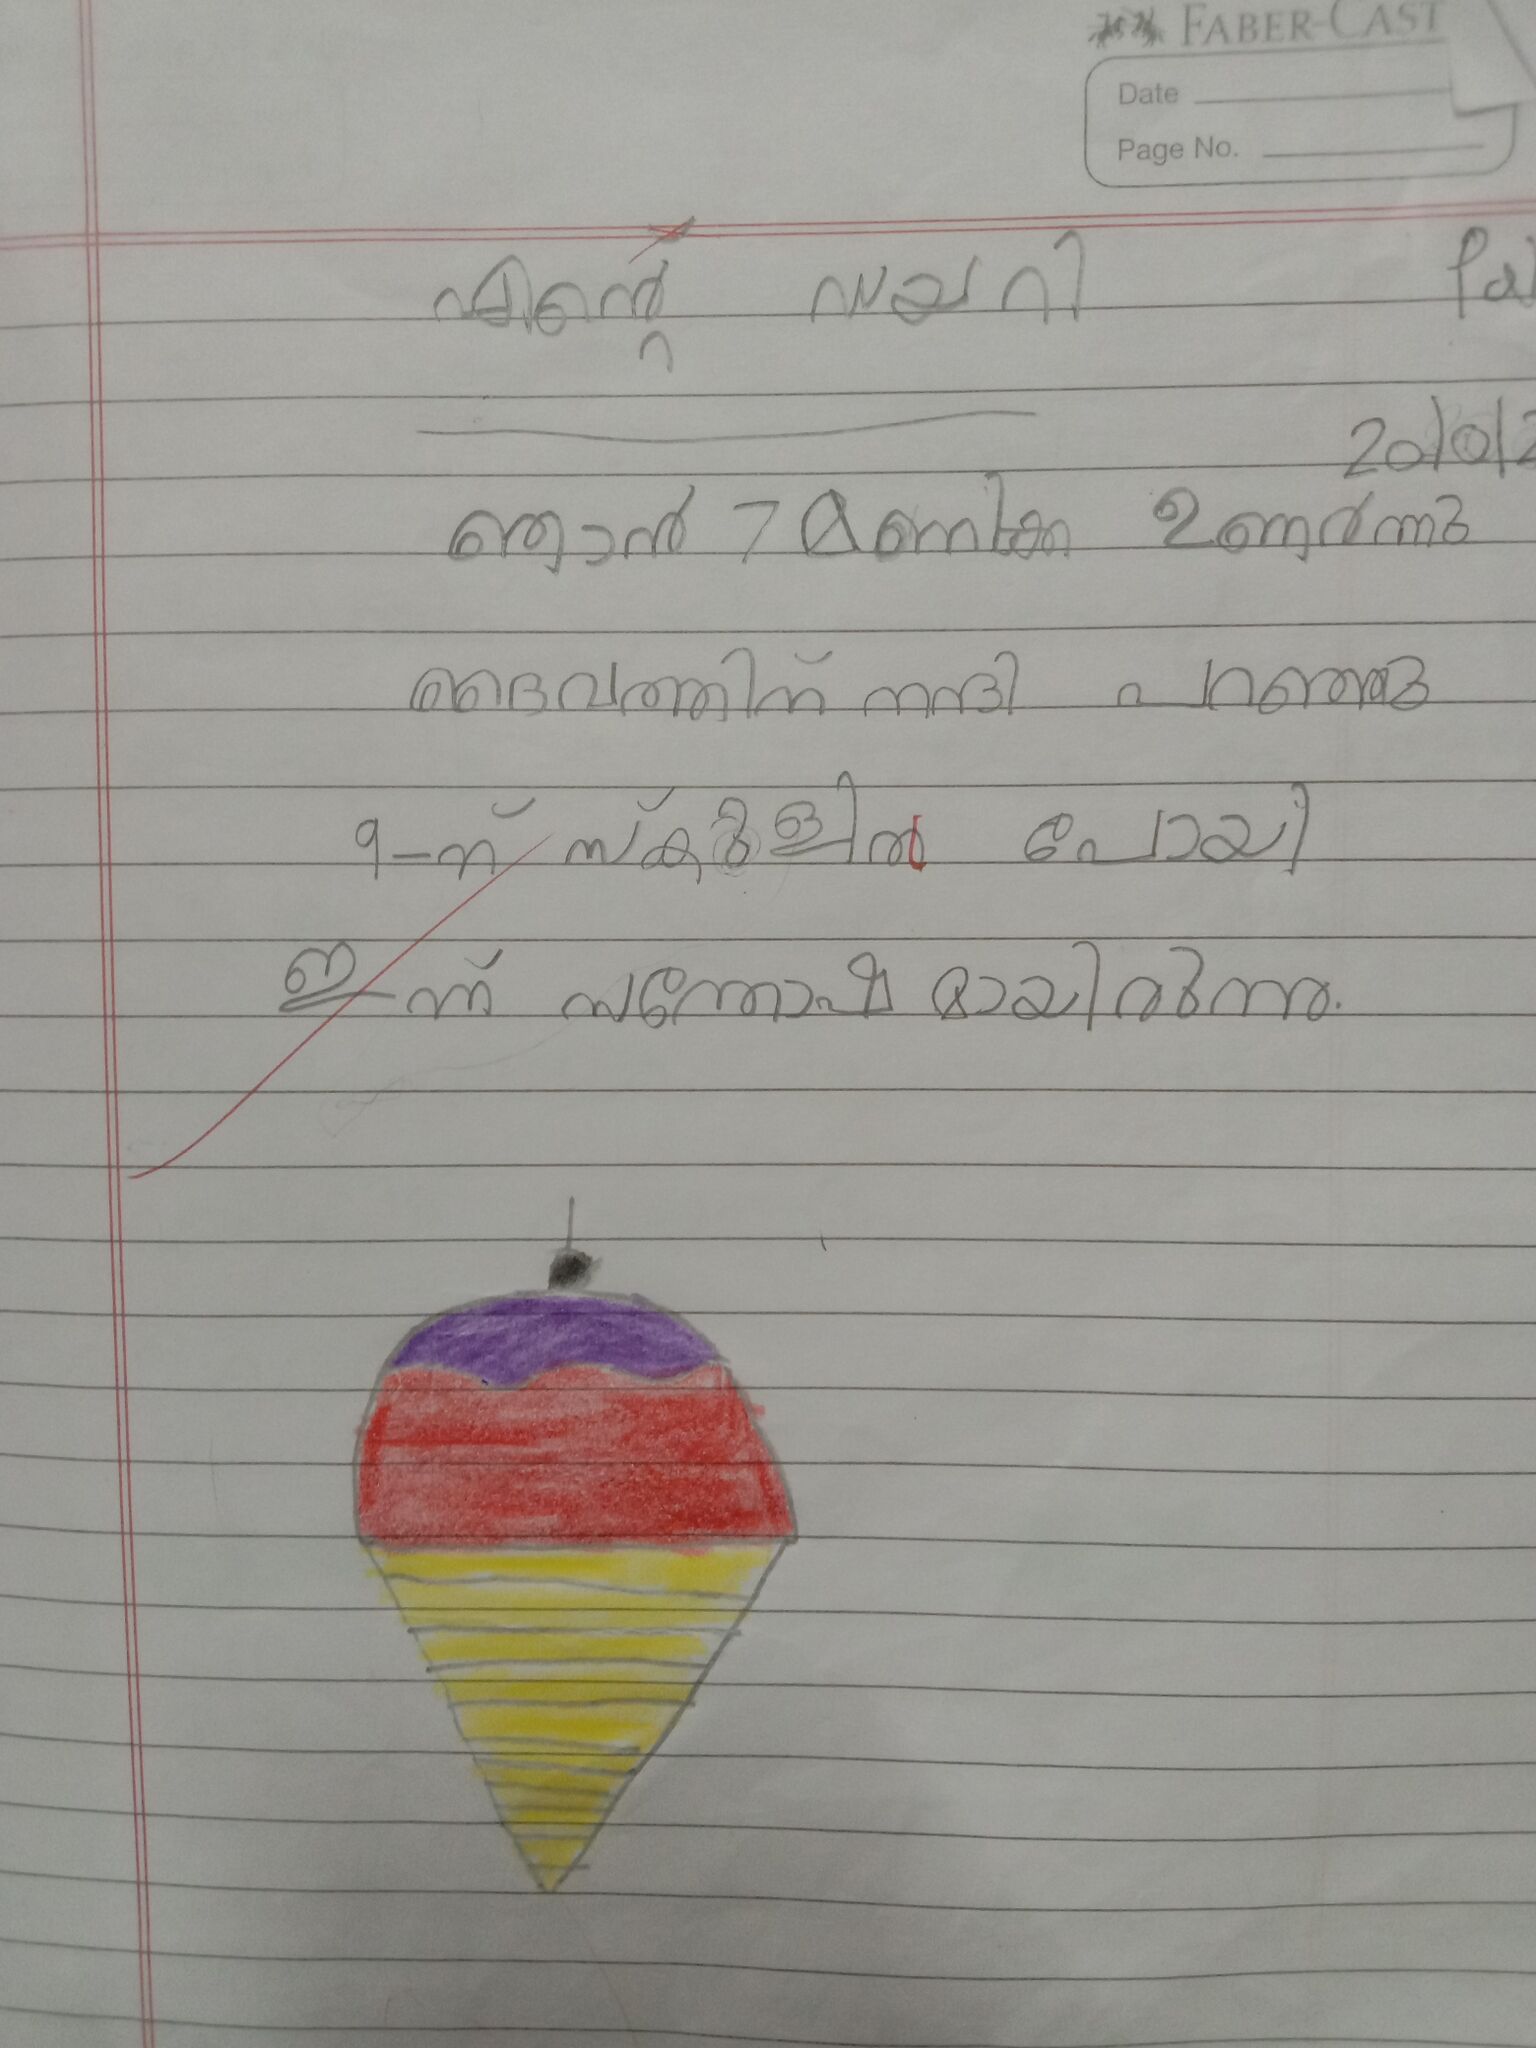 FABER-CAST
Date
Page No.
എന്റെ ഡയറി
20/0/2
ഞാൻ 7 മണിക്ക ഉണർന്നു
ദൈവത്തിന് നന്ദി പറഞ്ഞു
9-ന് സ്കൂളിൽ പോയി
ഇന്ന് സന്തോഷമായിരുന്നു.